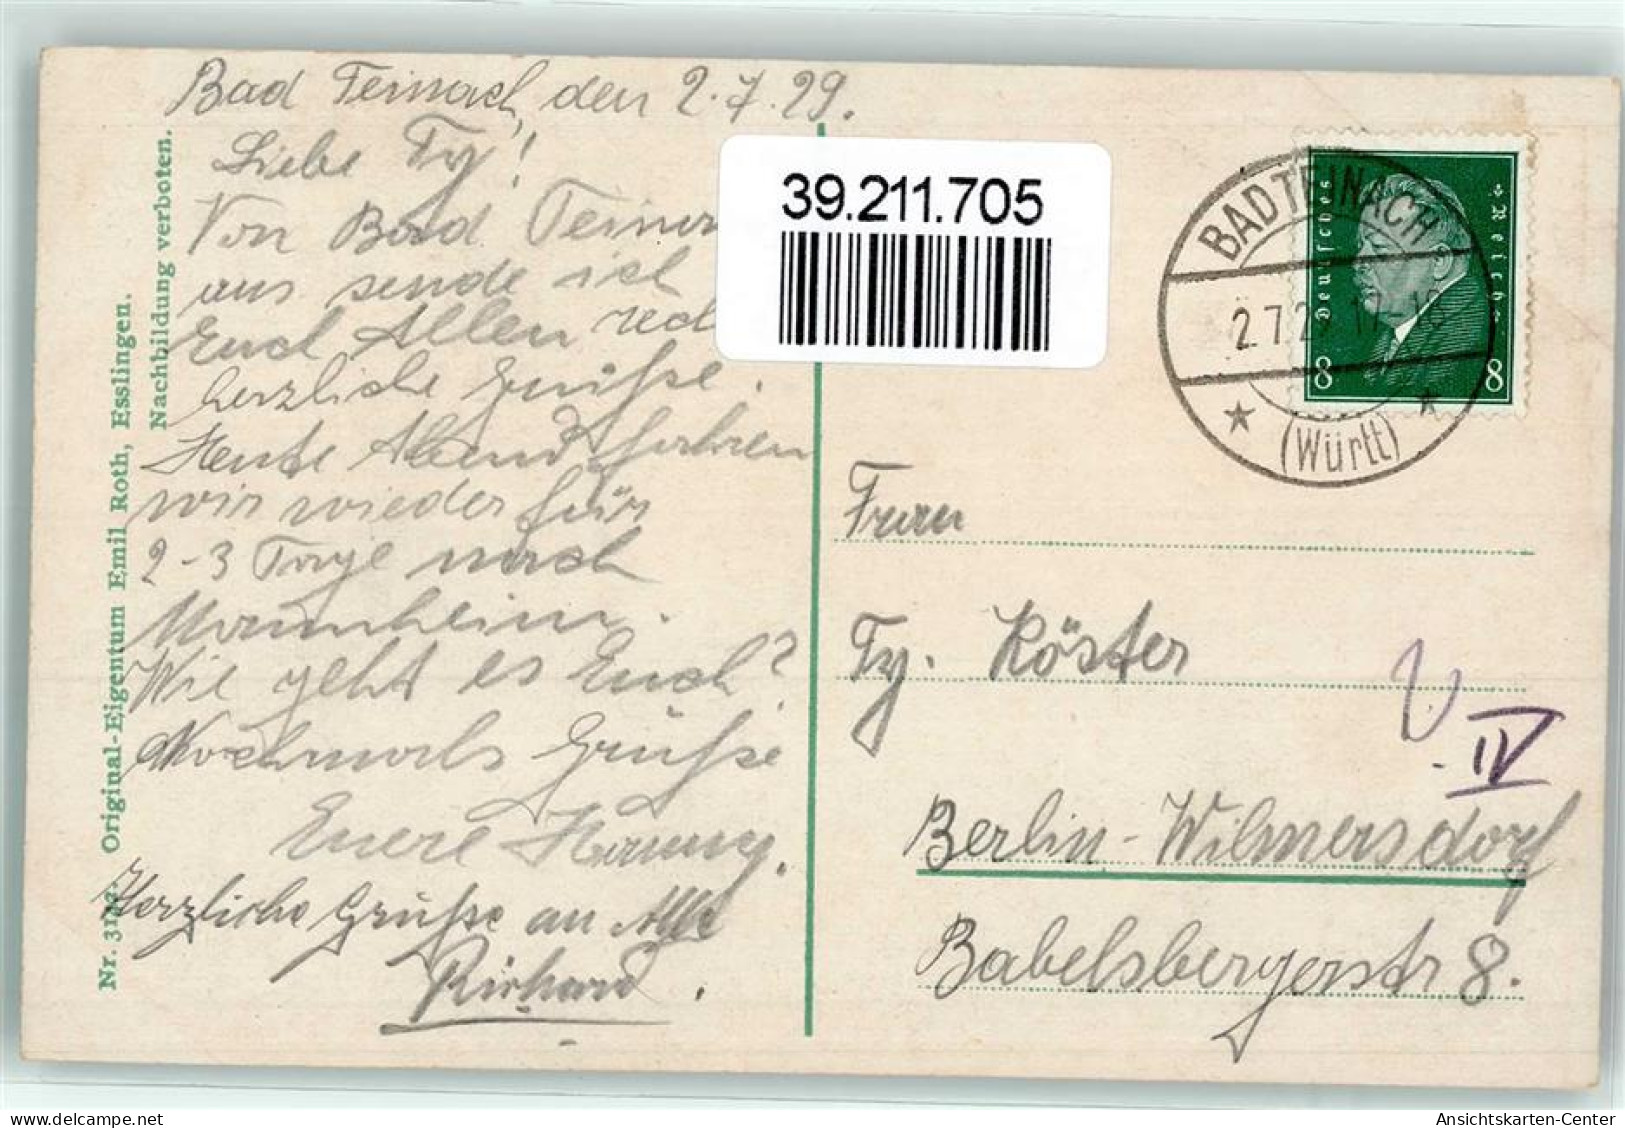 Bad Teinach, den 2.7.29.
Liebe Ty!
Von Bad Teinac
aus sende ich
Euch Allen rech
herzliche Grüße.
Heute Abend fahren
wir wieder für
2-3 Tage nach
Mannheim.
Wie geht es Euch?
Nochmals Grüße
Euere
Herzliche Grüße an Alle
Richard.
Nr. 31 Original-Eigentum Emil Roth, Esslingen.
Nachbildung verboten.
39.211.705
BAD TEINACH
2.7.29 17-18
(Württ)
Deutsches Reich
8 8
Frau
Ty. Köster
IV
Berlin-Wilmersdorf
Babelsbergerstr 8.
oldthing.de
Ansichtskarten-Center